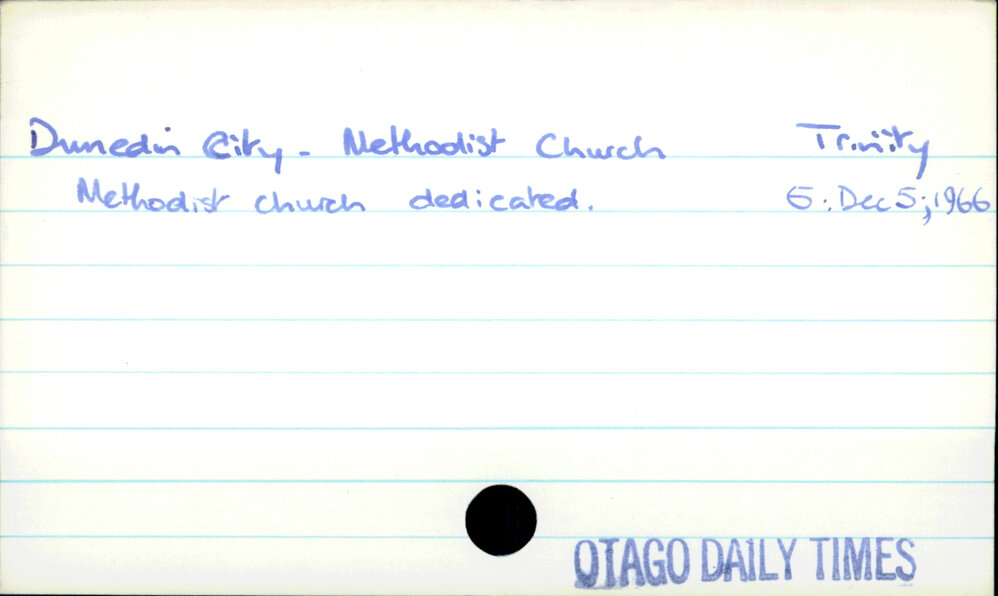 Dunedin City - Methodist Church Trinity
Methodist church dedicated. 5: Dec 5; 1966
OTAGO DAILY TIMES